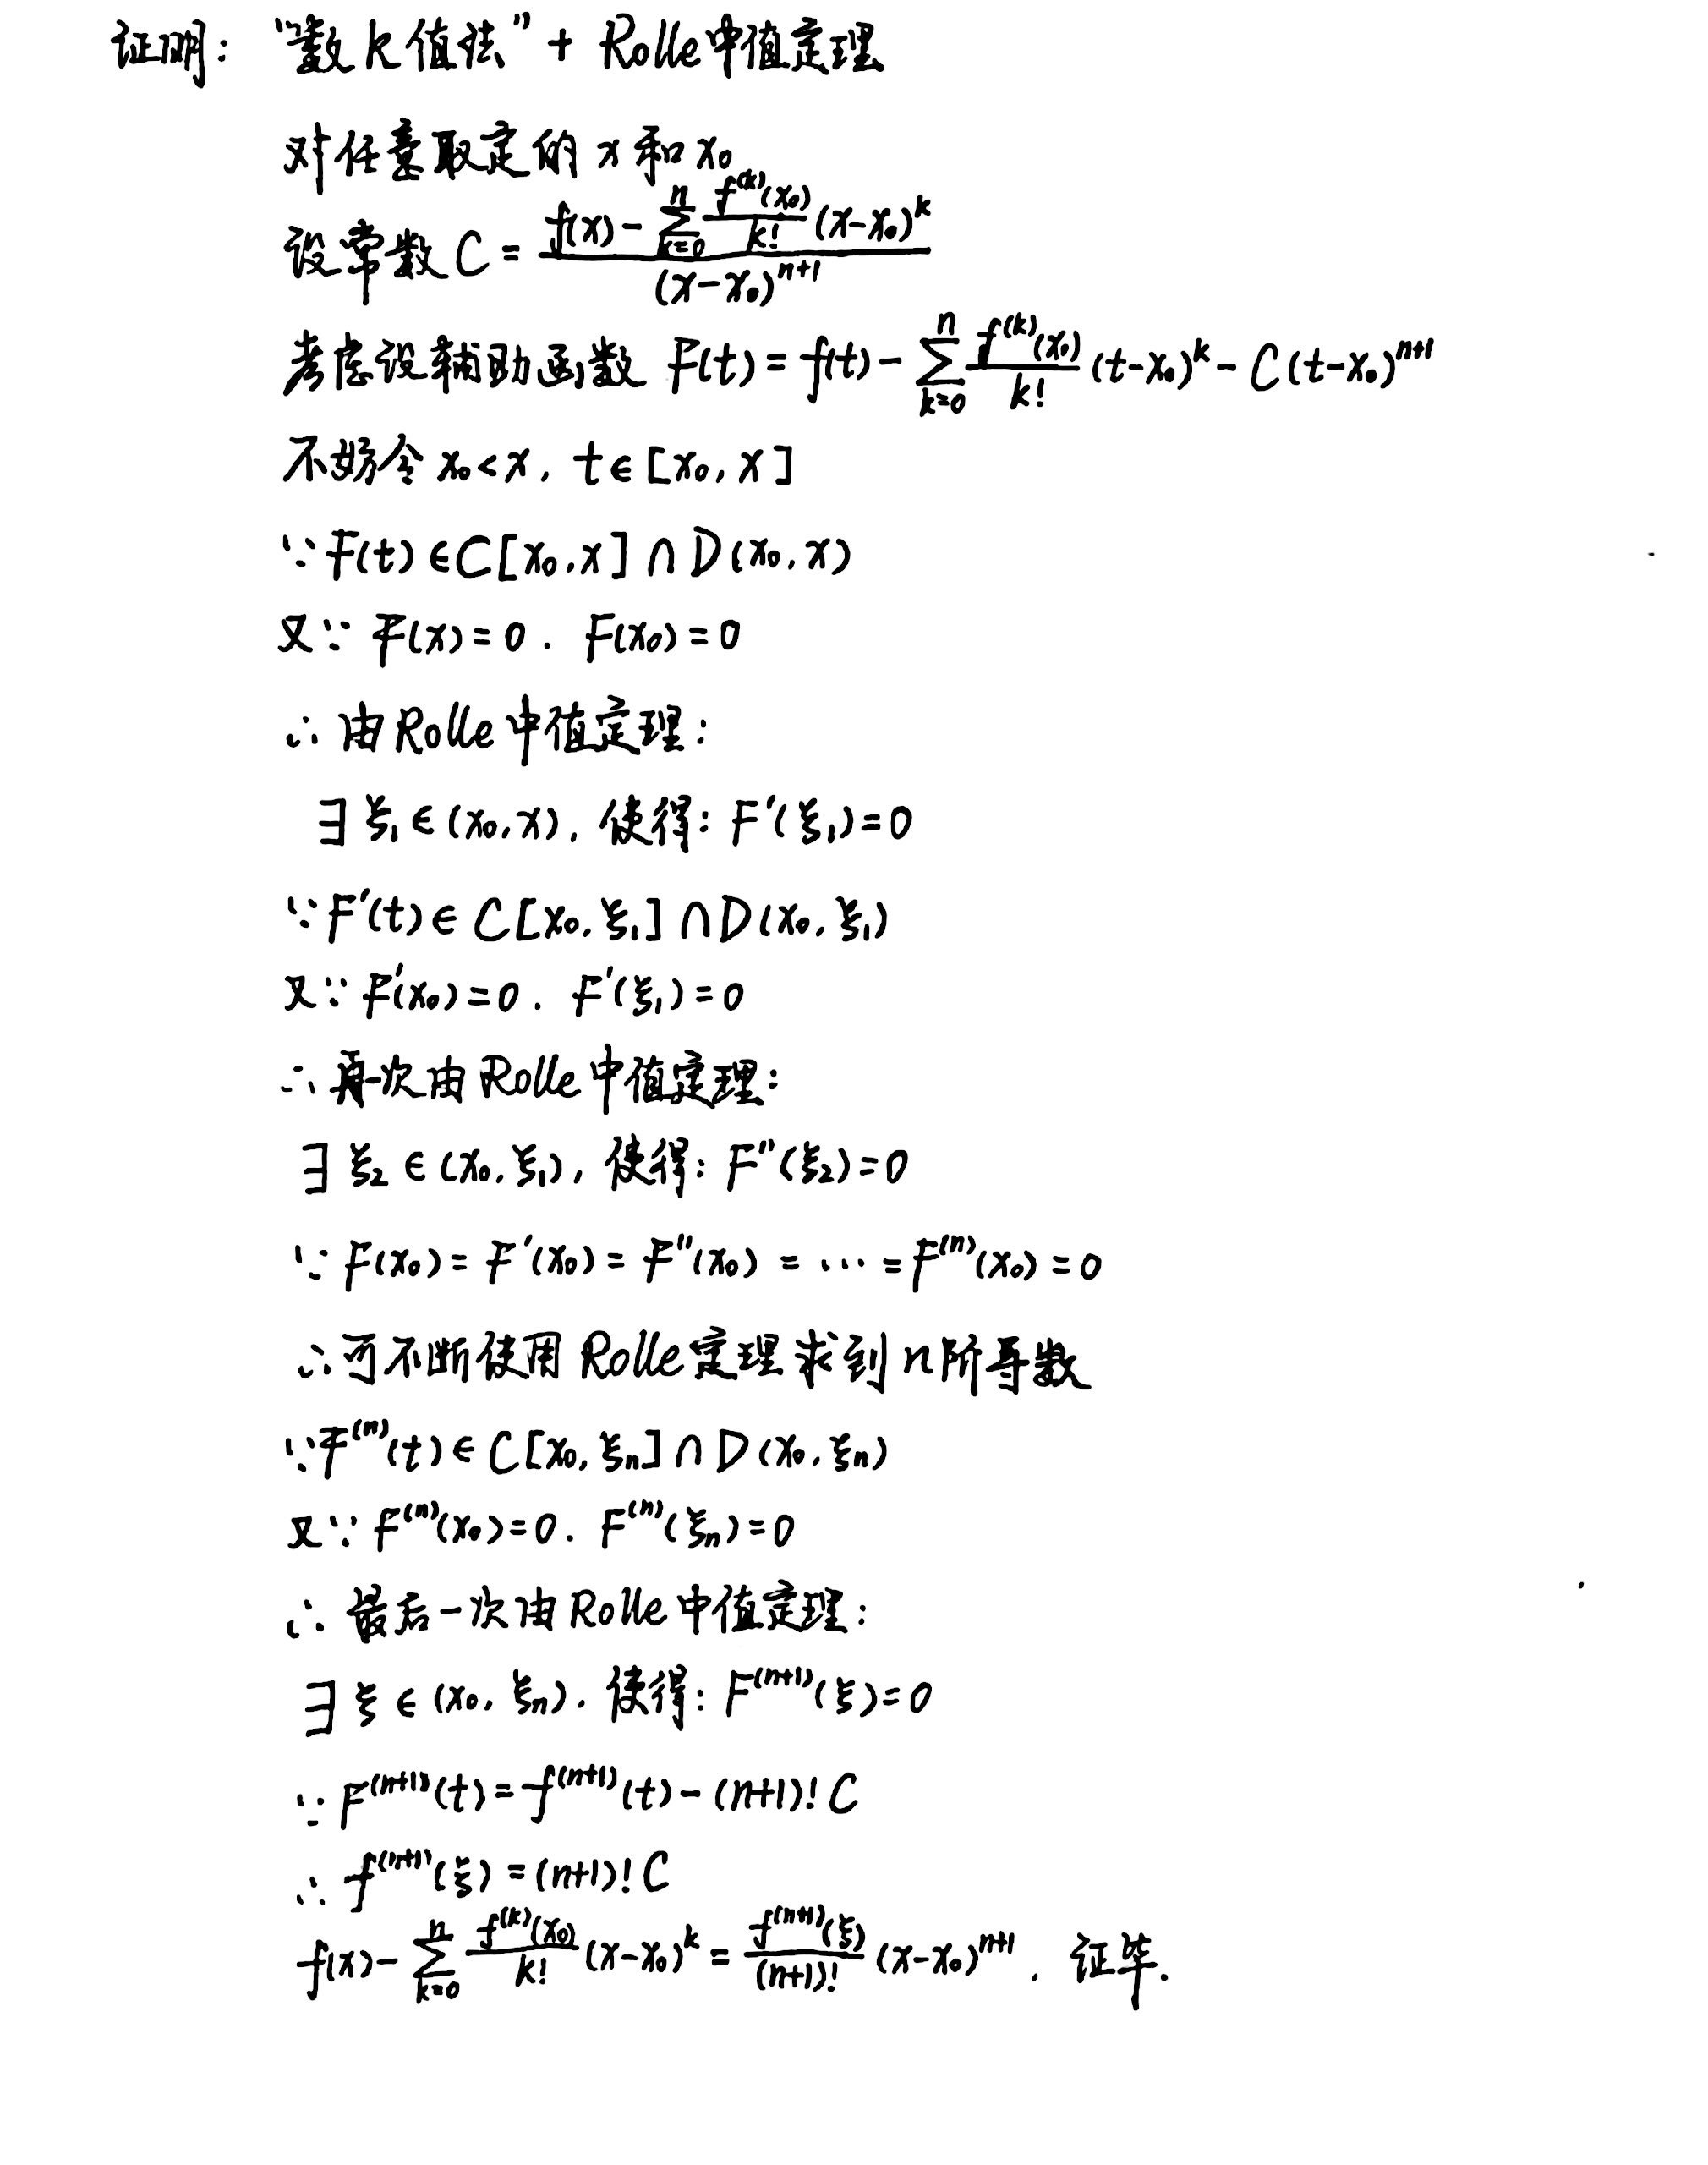 证明: “数k值法” + Rolle中值定理
对任意取定的 x 和 x₀
设常数 C = \frac{f(x) - \sum_{k=0}^{n} \frac{f^{(k)}(x₀)}{k!} (x-x₀)^k}{(x-x₀)^{n+1}}
考虑设辅助函数 F(t) = f(t) - \sum_{k=0}^{n} \frac{f^{(k)}(x₀)}{k!} (t-x₀)^k - C(t-x₀)^{n+1}
不妨令 x₀<x, t∈[x₀, x]
∵ F(t) ∈ C[x₀, x] ∩ D(x₀, x)
又∵ F(x)=0. F(x₀)=0
∴ 由Rolle中值定理:
∃ ξ₁∈(x₀, x), 使得: F'(ξ₁)=0
∵ F'(t) ∈ C[x₀, ξ₁] ∩ D(x₀, ξ₁)
又∵ F'(x₀)=0. F'(ξ₁)=0
∴ 再次由Rolle中值定理:
∃ ξ₂ ∈ (x₀, ξ₁), 使得: F''(ξ₂)=0
∵ F(x₀) = F'(x₀) = F''(x₀) = ⋯ = F^{(n)}(x₀) = 0
∴ 可不断使用Rolle定理求到n阶导数
∵ F^{(n)}(t) ∈ C[x₀, ξₙ] ∩ D(x₀, ξₙ)
又∵ F^{(n)}(x₀)=0. F^{(n)}(ξₙ)=0
∴ 最后一次由Rolle中值定理:
∃ ξ ∈ (x₀, ξₙ). 使得: F^{(n+1)}(ξ)=0
∵ F^{(n+1)}(t) = f^{(n+1)}(t) - (n+1)! C
∴ f^{(n+1)}(ξ) = (n+1)! C
f(x) - \sum_{k=0}^{n} \frac{f^{(k)}(x₀)}{k!} (x-x₀)^k = \frac{f^{(n+1)}(ξ)}{(n+1)!} (x-x₀)^{n+1}. 证毕.